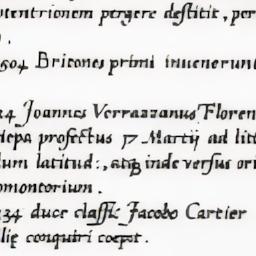 tentrionem pergere destitit, per
504 Britones primi invenerunt
24 Joannes Verrazzanus Floren
profectus 17 Martij ad litt
dum latitud:, atq inde versus ori
omontorium.
34 duce classis Jacobo Cartier
conquiri coept.